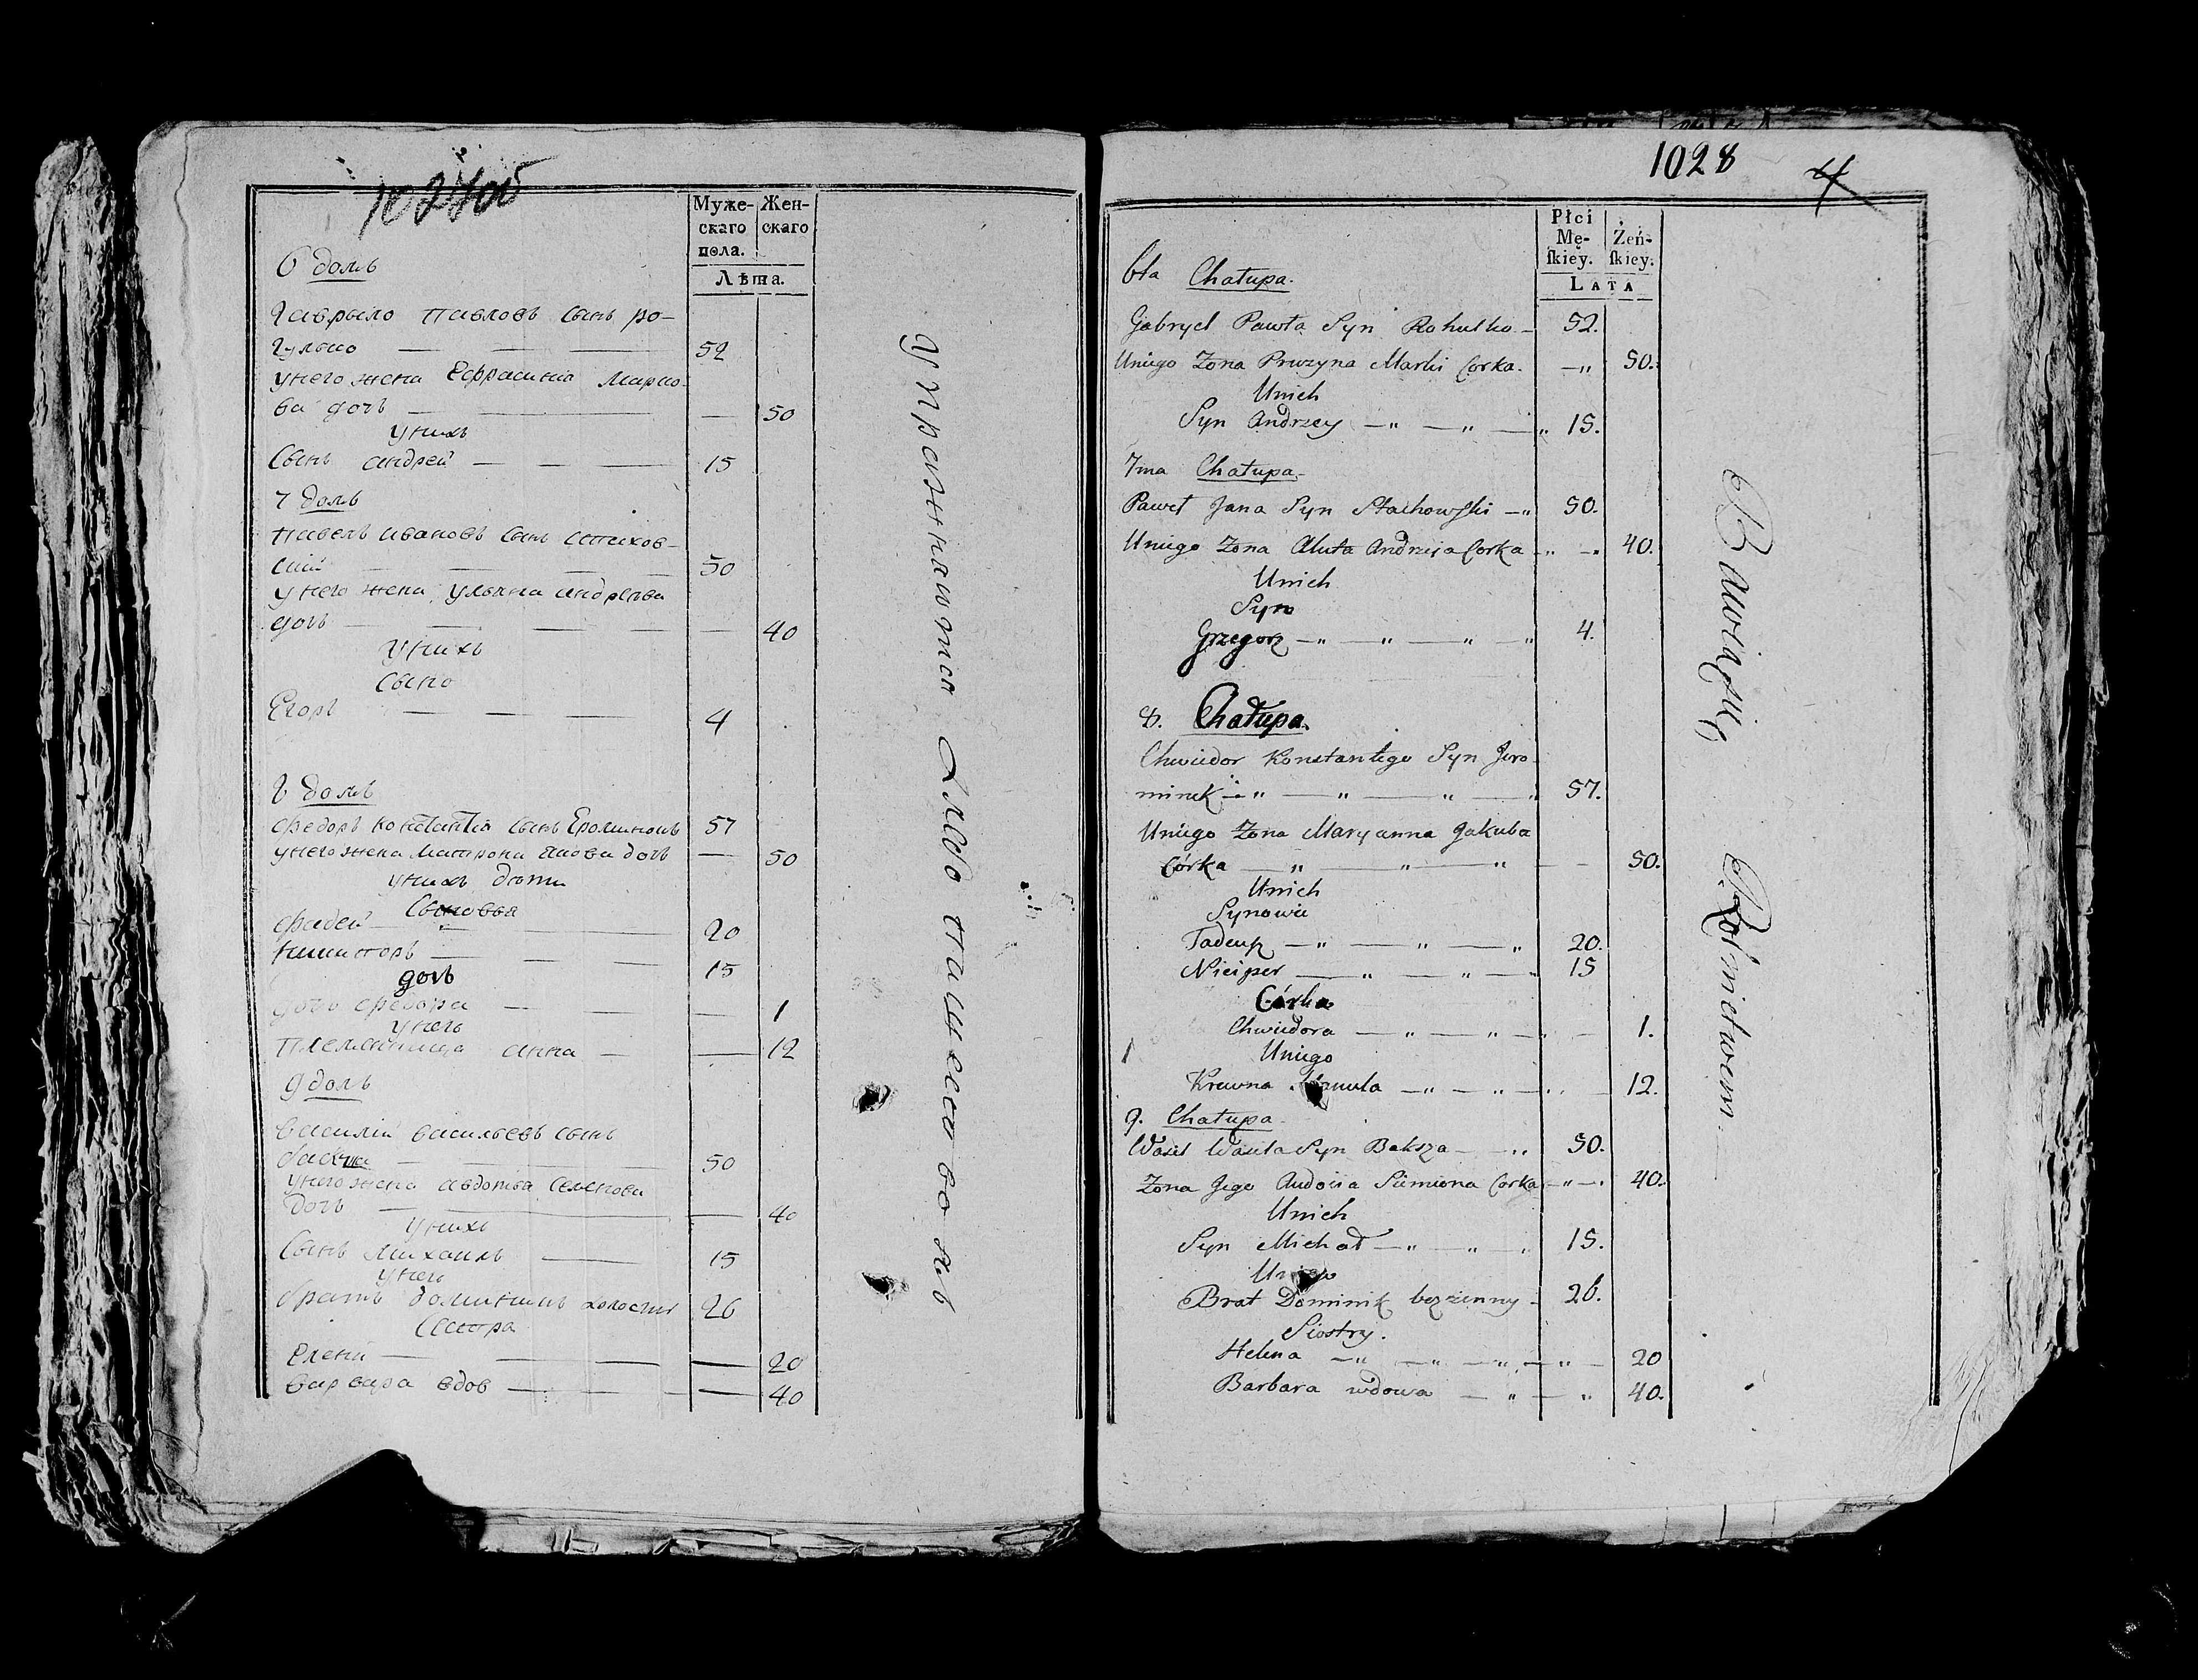 Муже-
скаго
пола.
Жен-
скаго
Лѣта.
6 домъ
Гаврыло Павловъ сынъ Ро-
гулько — — — 52
у него жена Ефрасинія Марко-
ва дочь — — — 50
у нихъ
Сынъ андрей — — — 15
7 домъ
Павелъ Ивановъ сынъ Стахов-
скій — — — 50
у него жена Ульяна андреева
дочь — — — — 40
у нихъ
Сынъ
Егоръ — — — 4
8 домъ
Федоръ Константіа сынъ Ероминокъ 57
у него жена Матрона Якова дочь — 50
у нихъ дѣти
Сыновья
Фадей — — 20
Никипоръ — — — 15
дочь
дочь Федора — — — 1
у него
племянница анна — — 12
9 домъ
Василій Васильевъ сынъ
Бакша — — 50
у него жена авдотья Семенова
дочь — — — 40
у нихъ
Сынъ Михаилъ — 15
у него
братъ доминикъ холостый 26
Сестра
Елена — — — — 20
варвара вдов — — — — 40
упражнаются Хлебо пашествомъ
1028
4
Płci
Mę-
ſkiey.
Żeń-
ſkiey.
LATA
6ta Chałupa.
Gabryel Pawła Syn Rohulko — 52.
Uniego Zona Pruzyna Marki Corka. — " 50.
Unich
Syn Andrzey — " — " — " 15.
7ma Chałupa.
Paweł Jana Syn Stachowſki — " 50.
Uniego Zona Aluta Andrzeja Corka — " — " 40.
Unich
Syn
Grzegorz — " — " — " — " 4.
8. Chałupa.
Chwiedor Konstantego Syn Jero-
minek — " — " — " — " 57.
Uniego Zona Maryanna Jakuba
Córka — " — " — " — — 50.
Unich
Synowie
Tadeusz — " — " — " 20.
Niciper — " — " — 15
Córka
Chwiedora — " — " — " — 1.
Uniego
Krewna — " — " — " — 12.
9. Chałupa
Wasil Wasila Syn Baksza — — " 50.
Zona Jego Audocia Siemiona Corka — " — " 40.
Unich
Syn Michał — " — " — " 15.
Brat Dominik bezżenny — 26.
Siostry.
Helena — " — " — " — " — 20
Barbara wdowa — " — " 40.
Bawią się Rolnictwem —